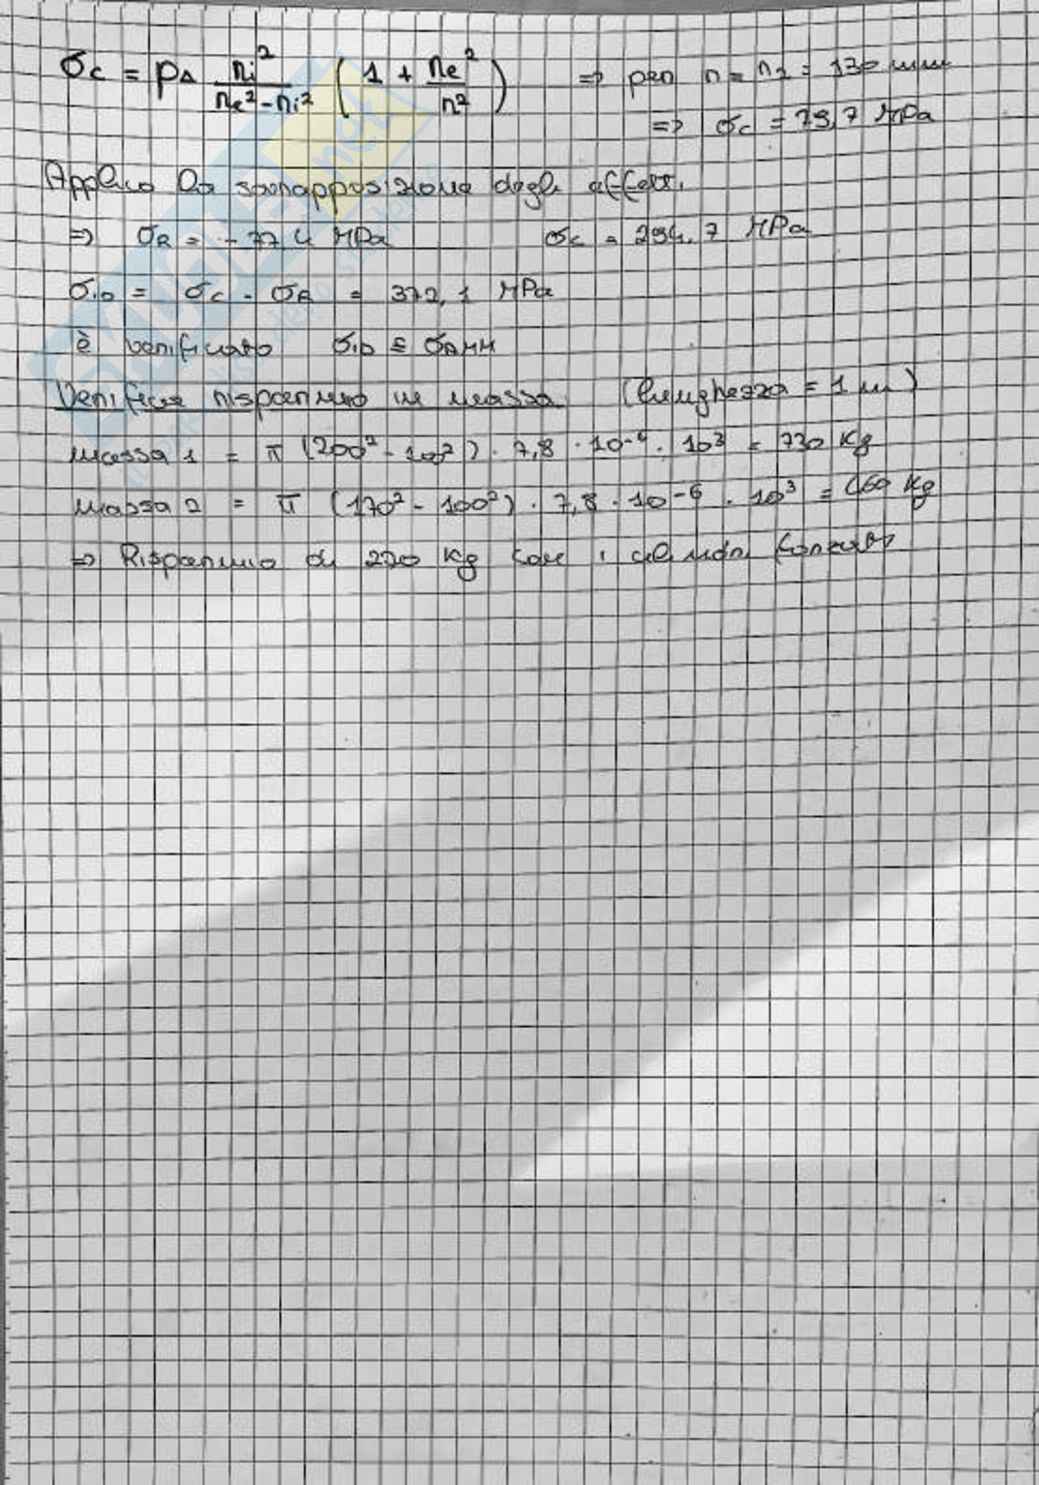 σc = pA ri²/(re²-ri²) (1 + re²/r²) ⇒ per r = r1 = 130 mm
⇒ σc = 79,7 MPa
Applico la sovrapposizione degli effetti.
⇒ σR = - 77,4 MPa σc = 294,7 MPa
σid = σc - σR = 372,1 MPa
è verificato σid ≤ σAMM
Verifica risparmio in massa (lunghezza = 1 m)
massa 1 = π (200² - 100²) · 7,8 · 10⁻⁶ · 10³ = 730 Kg
massa 2 = π (170² - 100²) · 7,8 · 10⁻⁶ · 10³ = 460 Kg
⇒ Risparmio di Kg con i cilindri